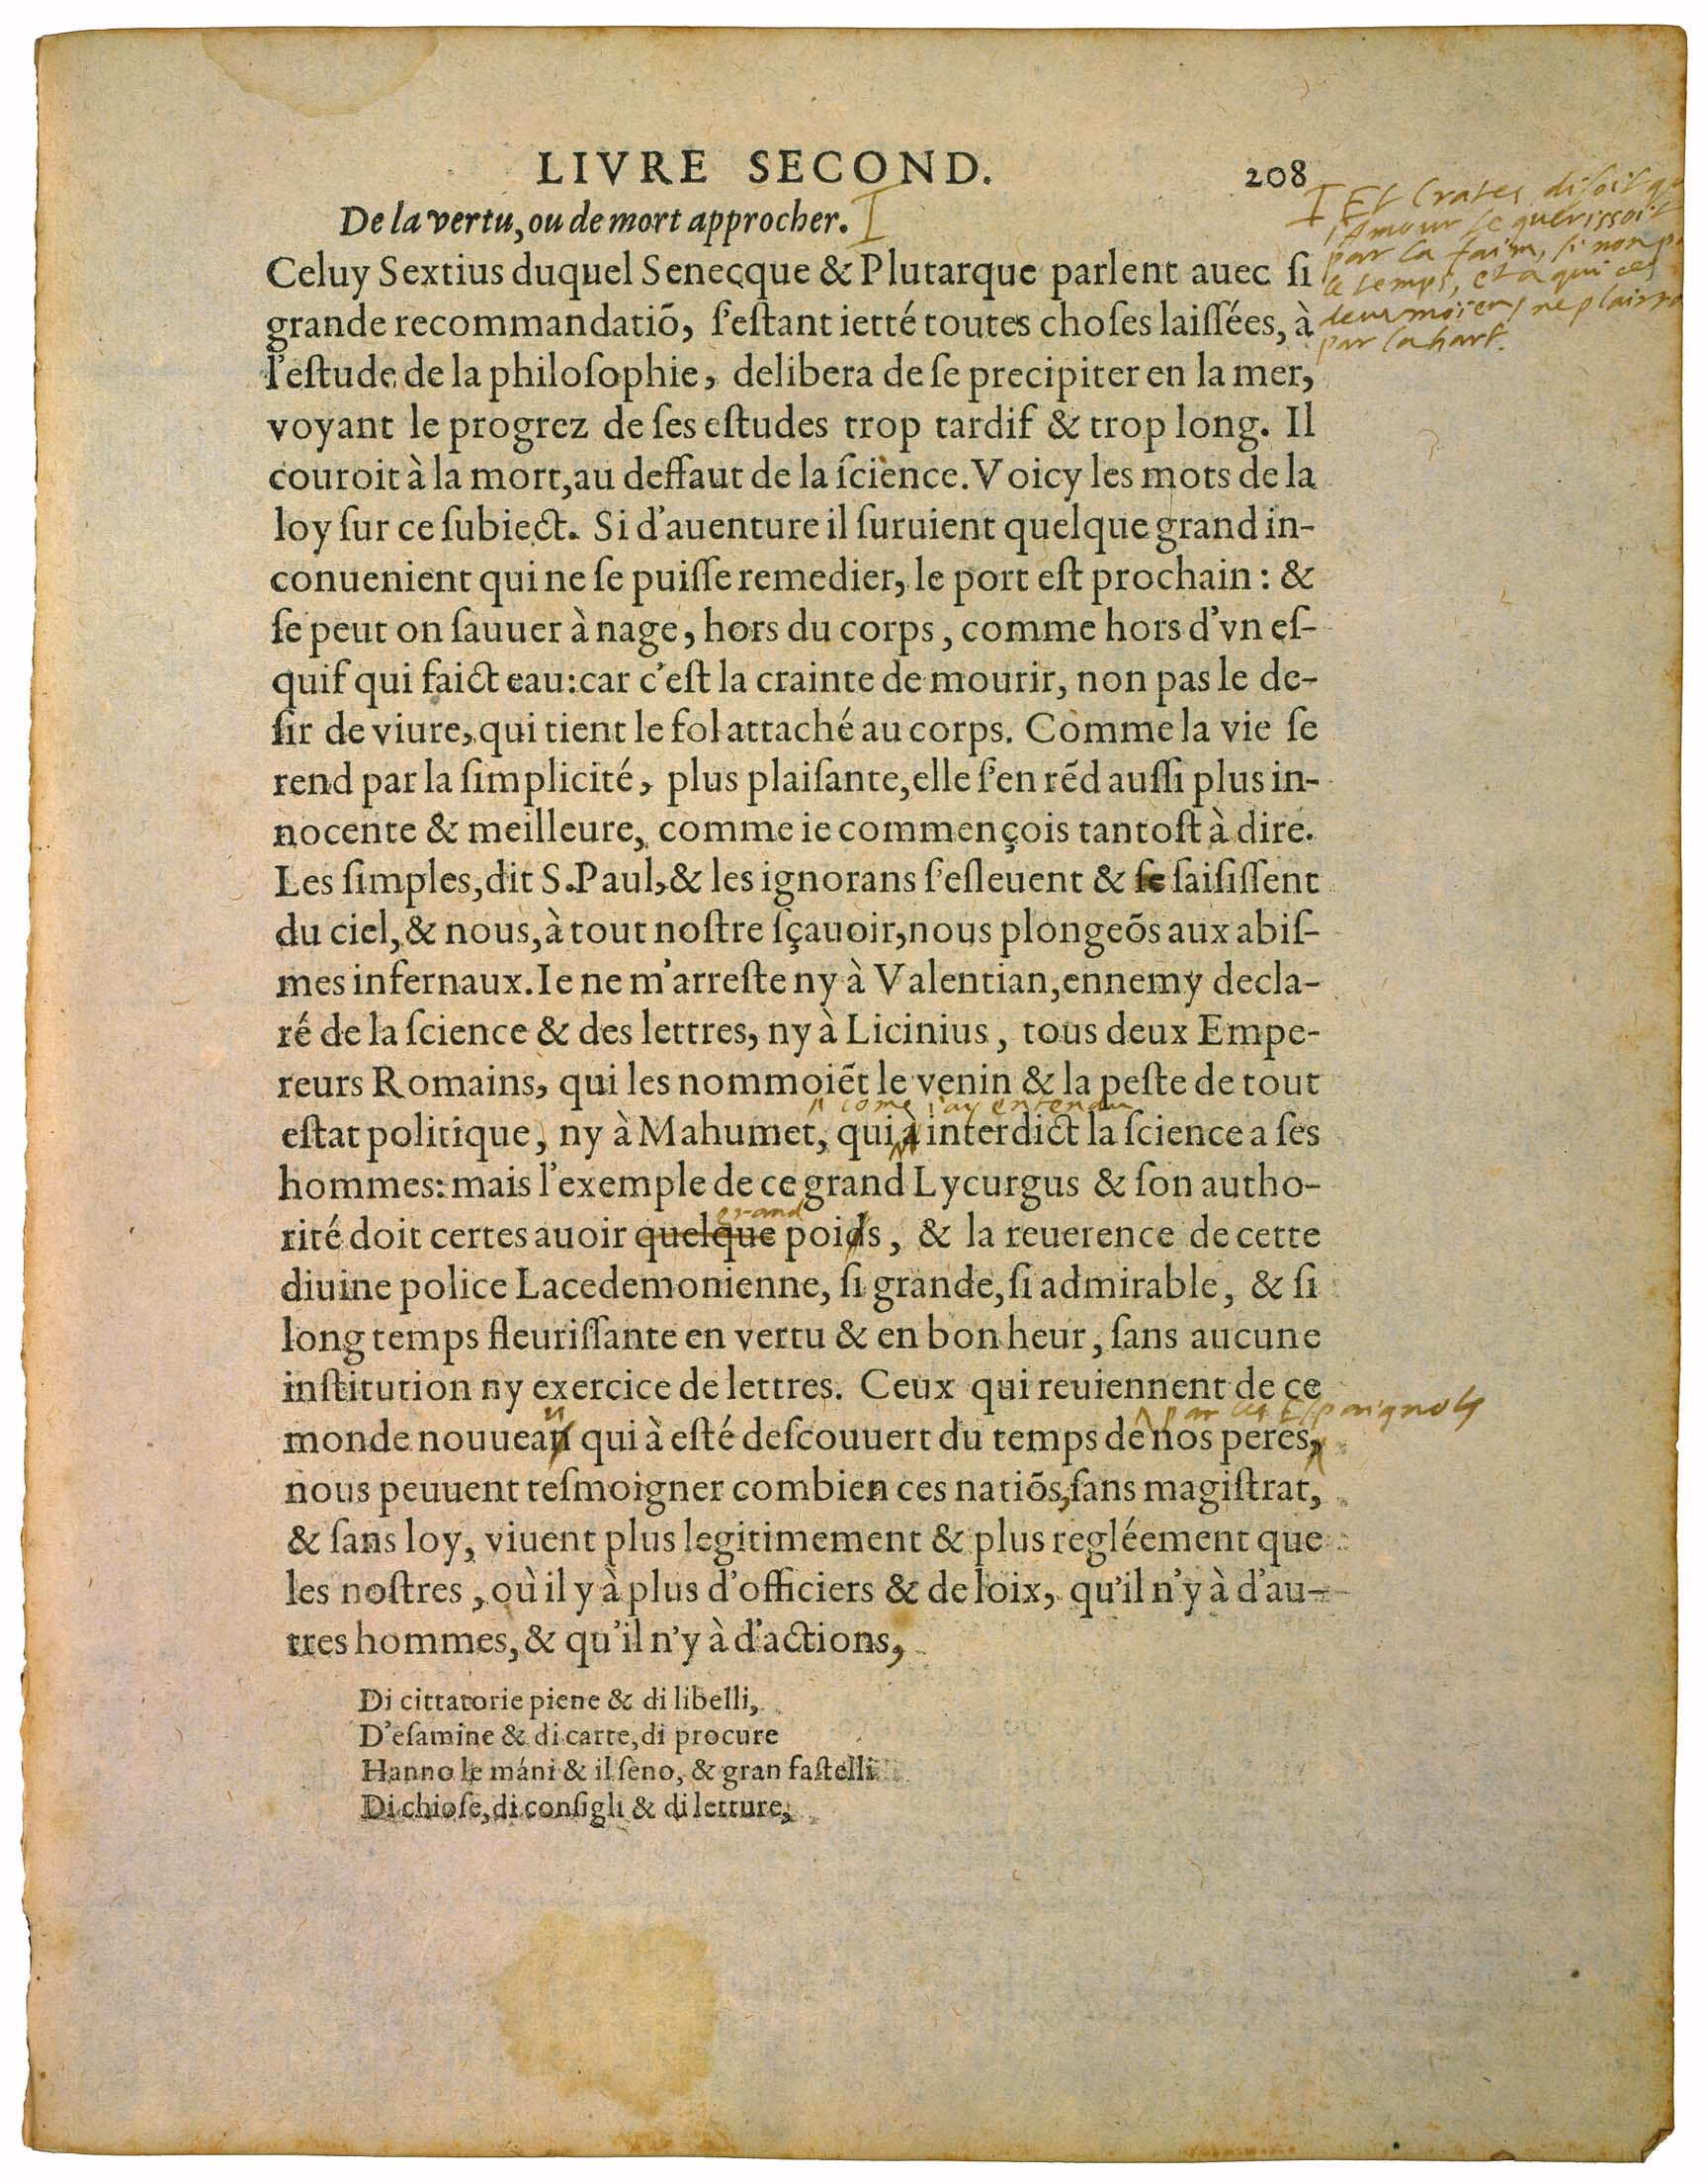 LIVRE SECOND. 208
De la vertu, ou de mort approcher. I
I Et Crates disoit
l'Amour se guerissoit
par la faim, si non
le temps, et a qui ces
deux moiens ne
par la hart.
Celuy Sextius duquel Senecque & Plutarque parlent auec ſi
grande recommandatiõ, ſ'eſtant ietté toutes choſes laiſſées, à
l'eſtude de la philoſophie, delibera de ſe precipiter en la mer,
voyant le progrez de ſes eſtudes trop tardif & trop long. Il
couroit à la mort, au deffaut de la ſcience. Voicy les mots de la
loy ſur ce ſubiect. Si d'auenture il ſuruient quelque grand in-
conuenient qui ne ſe puiſſe remedier, le port eſt prochain : &
ſe peut on ſauuer à nage, hors du corps, comme hors d'vn eſ-
quif qui faict eau: car c'eſt la crainte de mourir, non pas le de-
ſir de viure, qui tient le fol attaché au corps. Comme la vie ſe
rend par la ſimplicité, plus plaiſante, elle ſ'en rẽd auſſi plus in-
nocente & meilleure, comme ie commençois tantoſt à dire.
Les ſimples, dit S. Paul, & les ignorans ſ'eſleuent & ſe ſaiſiſſent
du ciel, & nous, à tout noſtre ſçauoir, nous plongeõs aux abiſ-
mes infernaux. Ie ne m'arreſte ny à Valentian, ennemy decla-
ré de la ſcience & des lettres, ny à Licinius, tous deux Empe-
reurs Romains, qui les nommoiẽt le venin & la peſte de tout
come i'ay entendu
eſtat politique, ny à Mahumet, qui à interdict la ſcience a ſes
hommes: mais l'exemple de ce grand Lycurgus & ſon autho-
grand
rité doit certes auoir quelque poids, & la reuerence de cette
diuine police Lacedemonienne, ſi grande, ſi admirable, & ſi
long temps fleuriſſante en vertu & en bon heur, ſans aucune
inſtitution ny exercice de lettres. Ceux qui reuiennent de ce
par les Espaignols
monde nouueau qui à eſté deſcouuert du temps de nos peres,
nous peuuent teſmoigner combien ces natiõs, ſans magiſtrat,
& ſans loy, viuent plus legitimement & plus regléement que
les noſtres, où il y à plus d'officiers & de loix, qu'il n'y à d'au-
tres hommes, & qu'il n'y à d'actions,
Di cittatorie piene & di libelli,
D'eſamine & di carte, di procure
Hanno le máni & il ſeno, & gran faſtelli
Di chioſe, di conſigli & di letture,